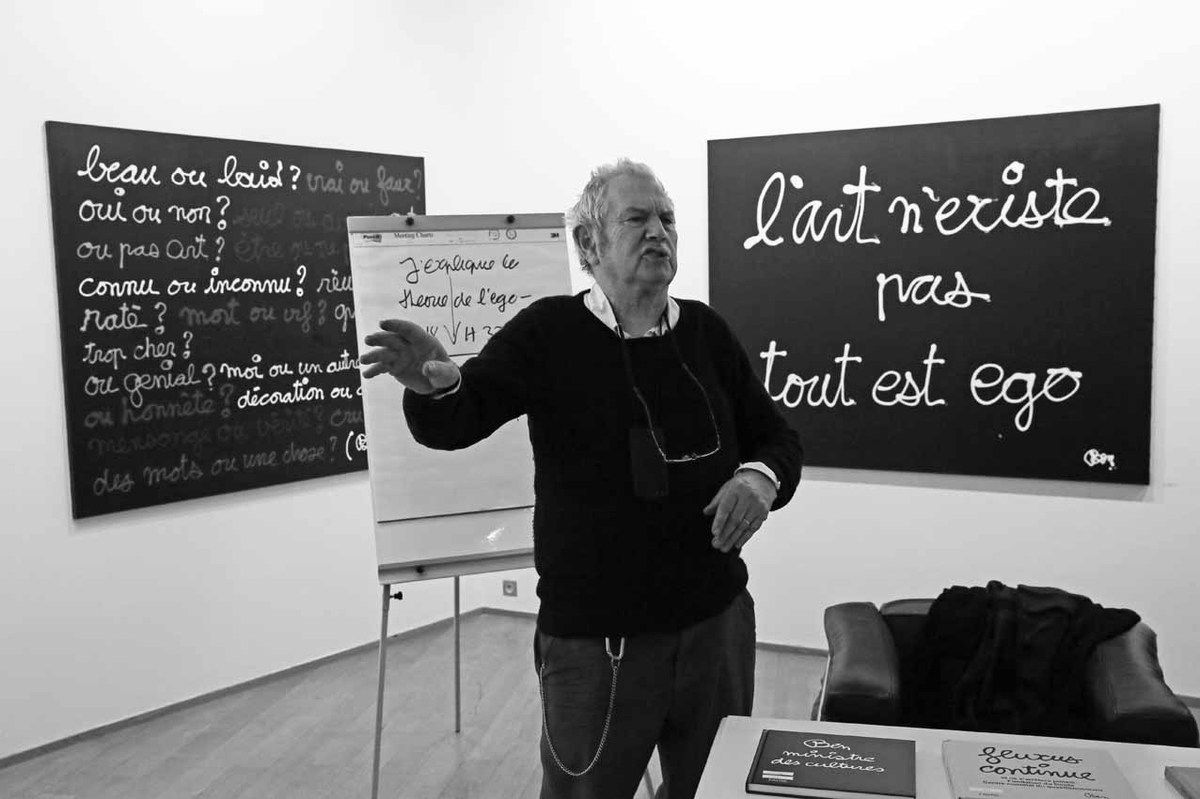 beau ou laid? vrai ou faux?
oui ou non? seul ou
ou pas art? être ou
connu ou inconnu?
raté? mort ou vif?
trop cher?
ou genial? moi ou un autre
décoration ou
ou honnête?
mensonge ou vérité?
des mots ou une chose?
Meeting Charts
3M
J'explique le
de l'ego
l'art n'existe
pas
tout est ego
Ben
Ben
ministre
des cultures
fluxus
continue